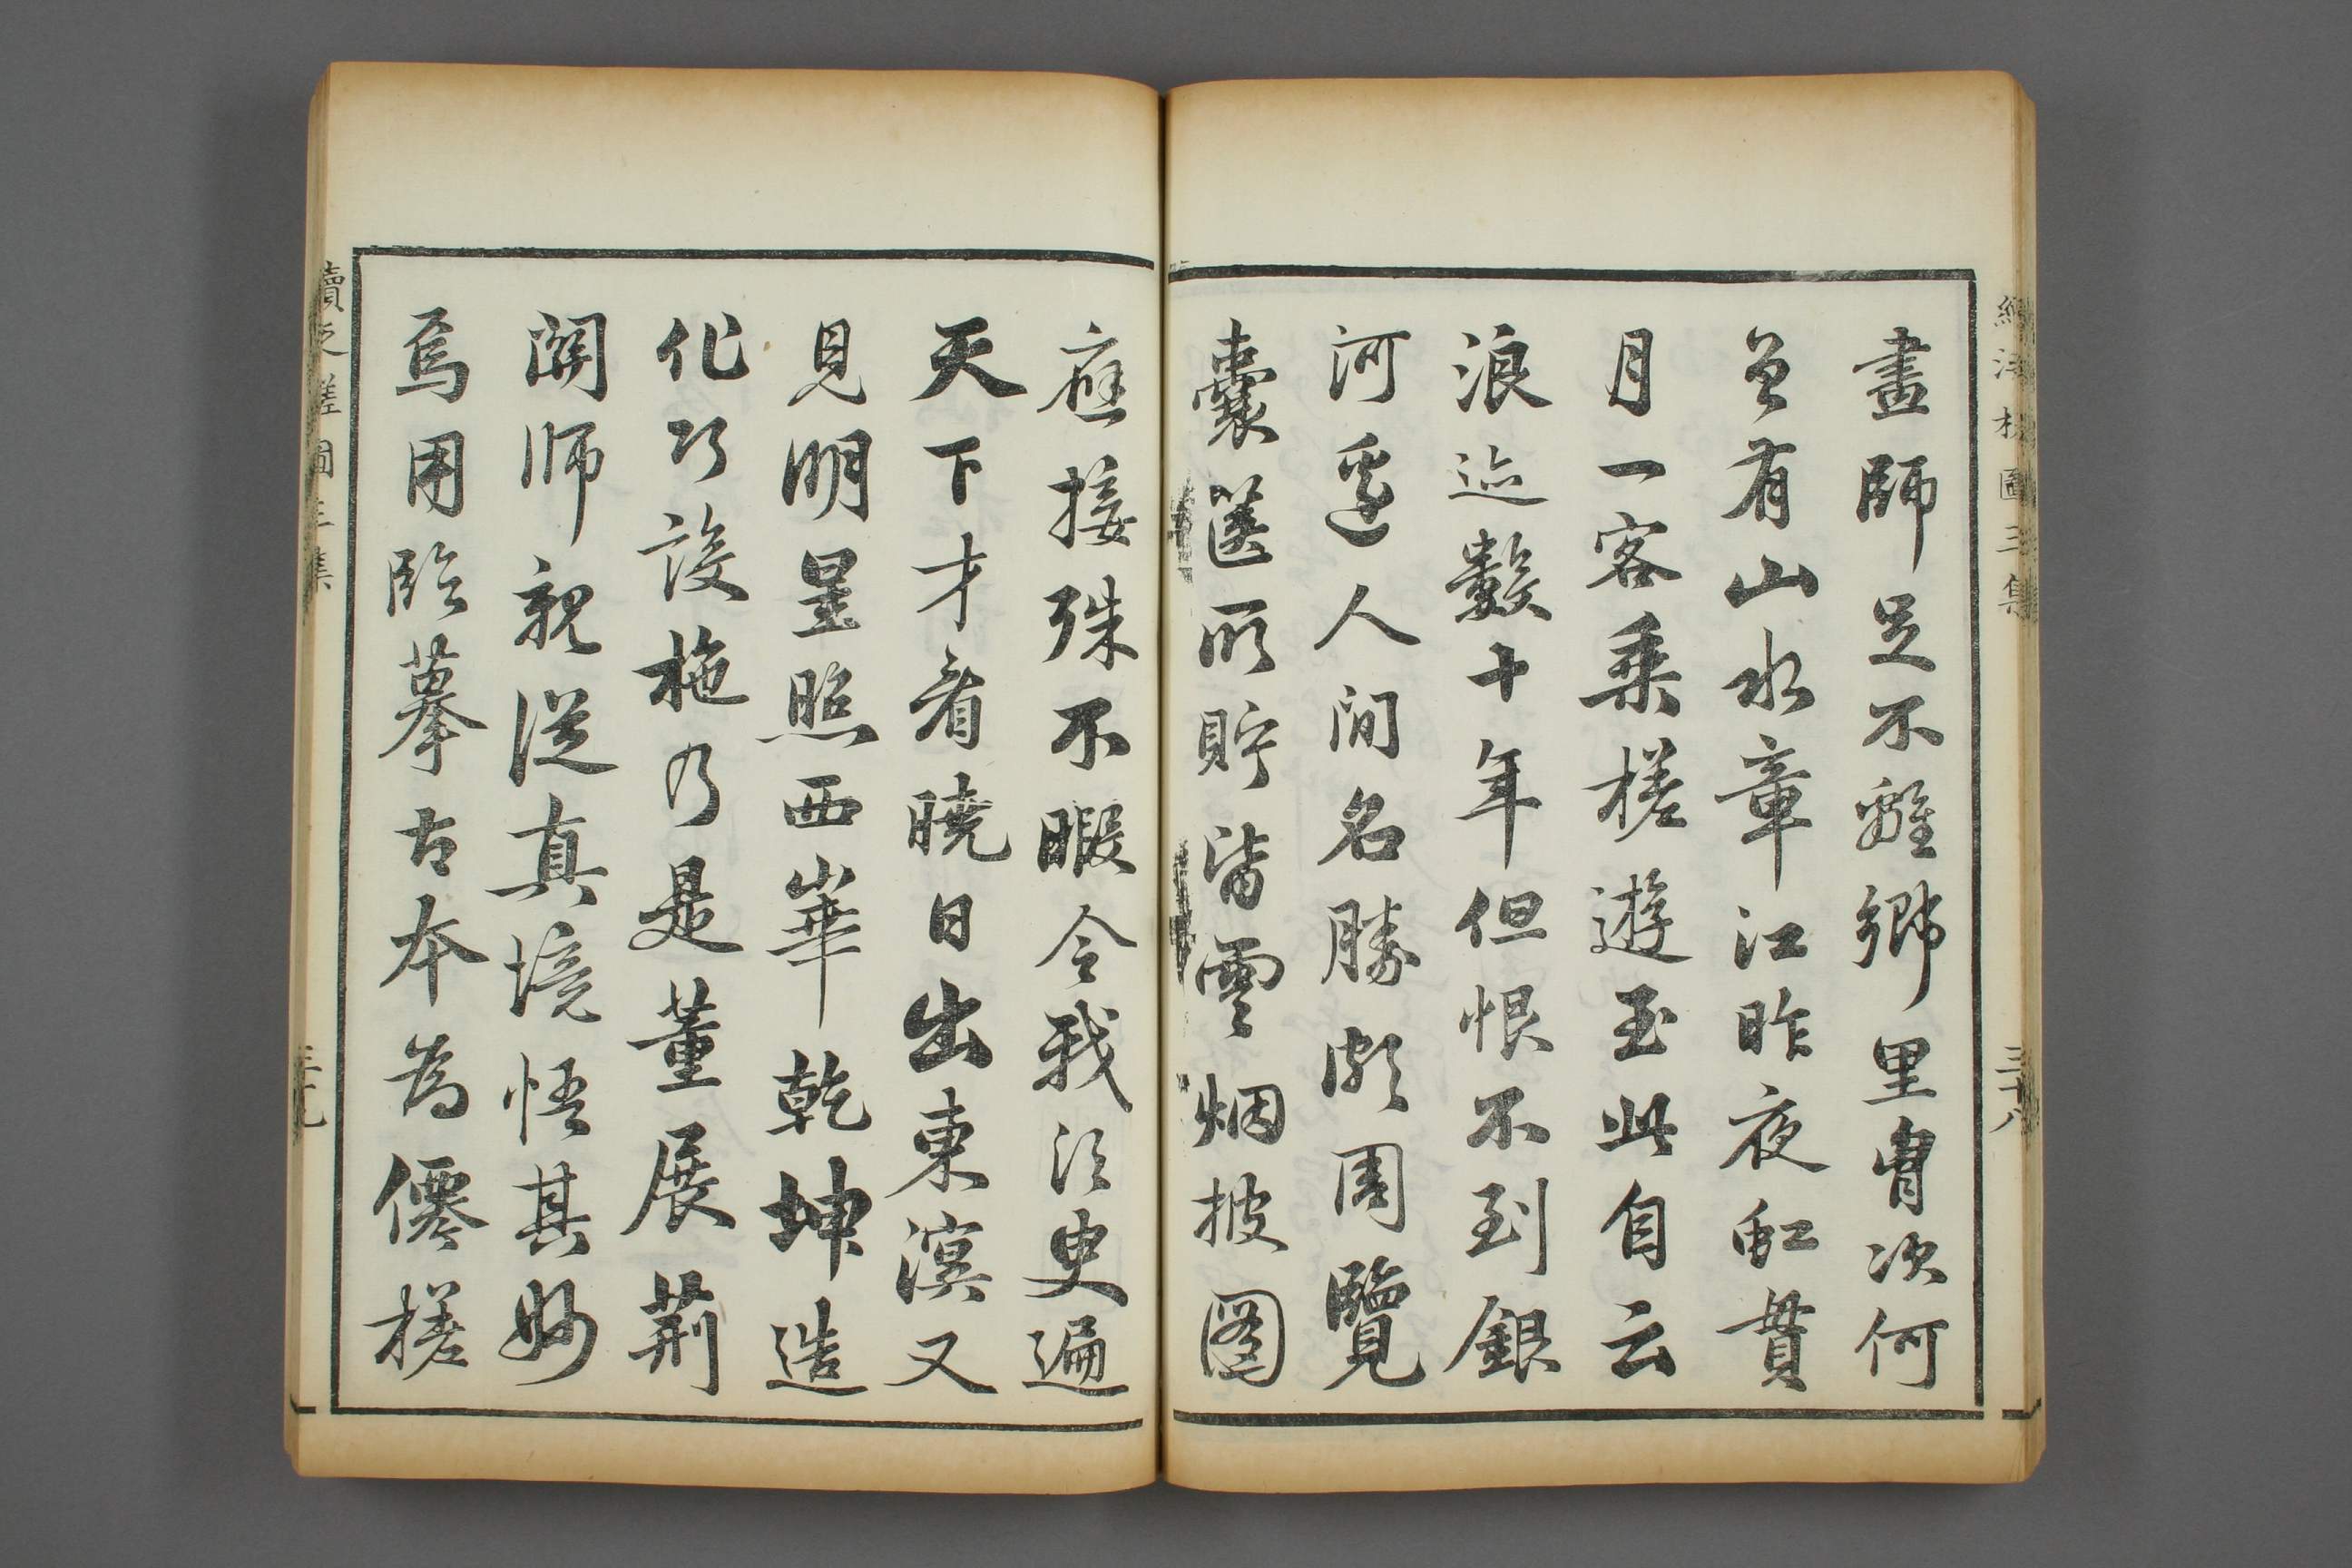 續泛槎圖三集
三十八
畫師足不離鄉里胷次何
曾有山水章江昨夜虹貫
月一客乘槎遊至此自云
浪迹數十年但恨不到銀
河邊人間名勝頗周覽
囊箧所貯皆雲烟披圖
應接殊不暇令我江史遍
天下才看曉日出東溟又
見明星照西崋乾坤造
化巧設施乃是董展荆
關師親從真境悟其妙
焉用臨摹古本為僊槎
續泛槎圖三集
三十九